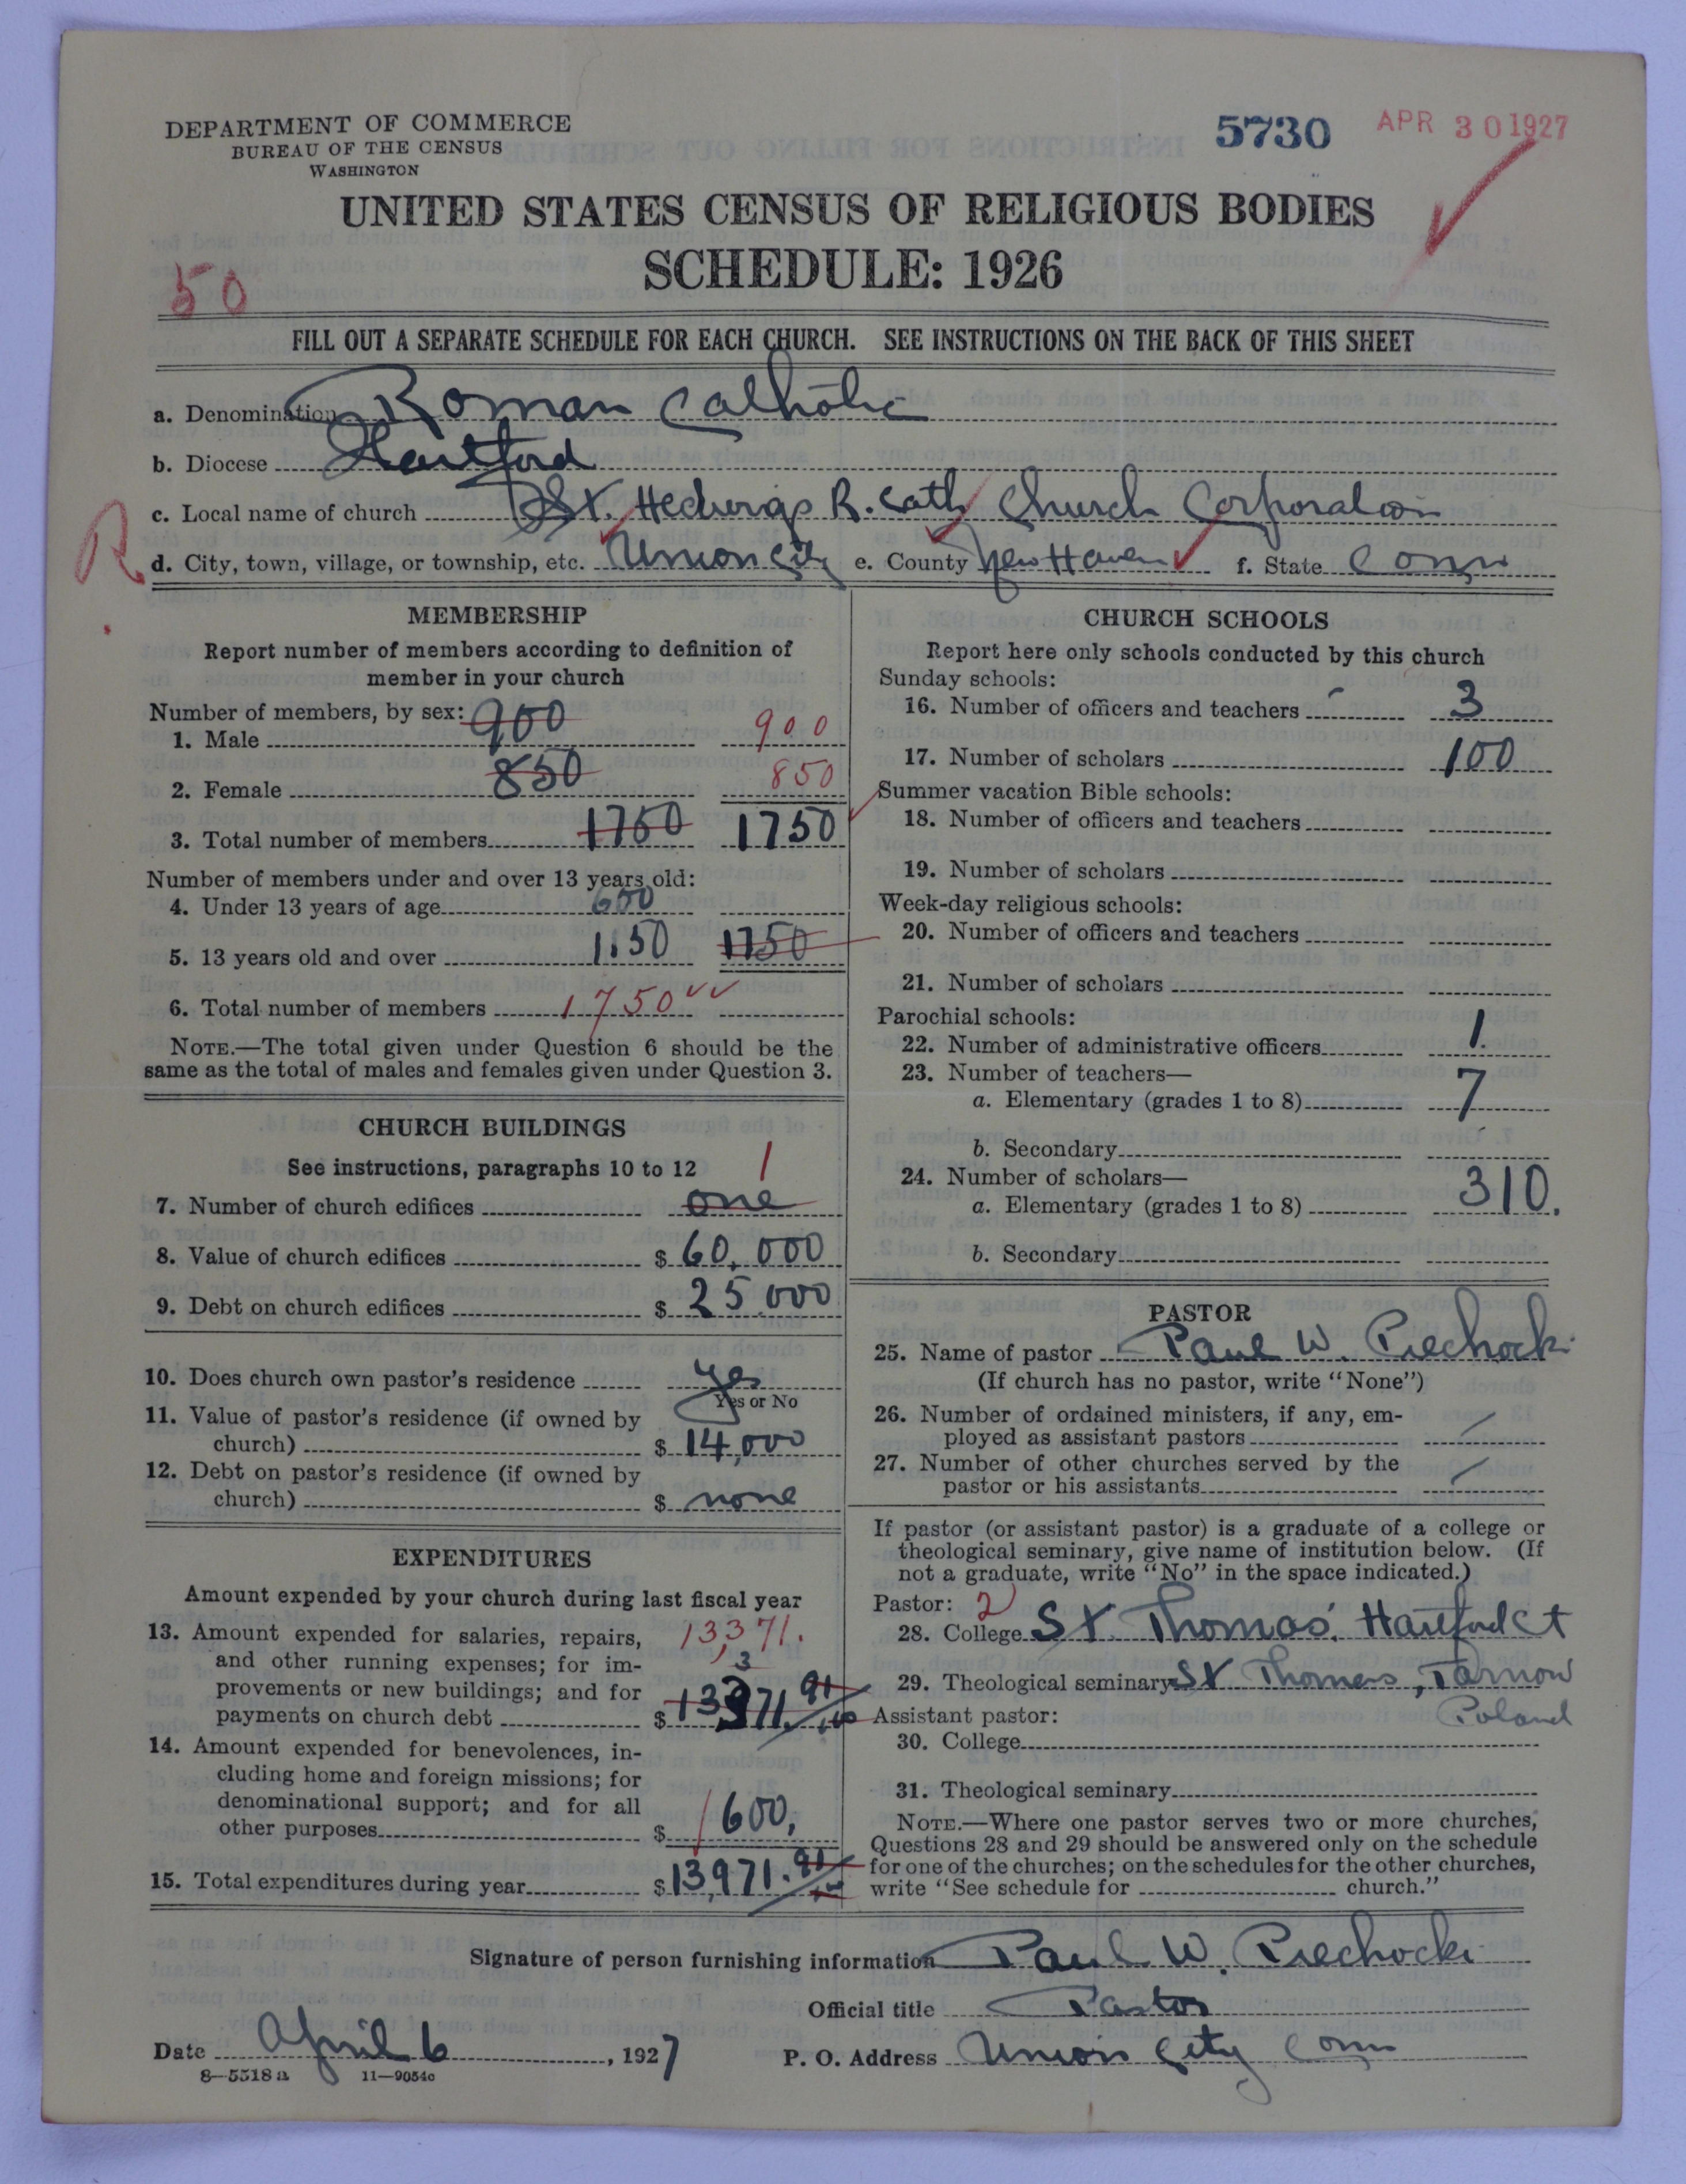 DEPARTMENT OF COMMERCE
BUREAU OF THE CENSUS
WASHINGTON
5730 APR 30 1927
UNITED STATES CENSUS OF RELIGIOUS BODIES
SCHEDULE: 1926
50
FILL OUT A SEPARATE SCHEDULE FOR EACH CHURCH. SEE INSTRUCTIONS ON THE BACK OF THIS SHEET
a. Denomination Roman Catholic
b. Diocese Hartford
c. Local name of church St. Hedwigs R. Cath Church Corporation
R
d. City, town, village, or township, etc. Union City e. County New Haven f. State Conn
MEMBERSHIP
Report number of members according to definition of
member in your church
Number of members, by sex: 900
1. Male 900
2. Female 850 850
3. Total number of members 1750 1750
Number of members under and over 13 years old:
4. Under 13 years of age 600
5. 13 years old and over 1150 1750
6. Total number of members 1750
NOTE.—The total given under Question 6 should be the
same as the total of males and females given under Question 3.
CHURCH BUILDINGS
See instructions, paragraphs 10 to 12 1
7. Number of church edifices one
8. Value of church edifices $ 60,000
9. Debt on church edifices $ 25.000
10. Does church own pastor's residence yes
Yes or No
11. Value of pastor's residence (if owned by
church) $ 14,000
12. Debt on pastor's residence (if owned by
church) $ none
EXPENDITURES
Amount expended by your church during last fiscal year
13. Amount expended for salaries, repairs, 13,371.
and other running expenses; for im- 3
provements or new buildings; and for
payments on church debt $ 13371.91/100
14. Amount expended for benevolences, in-
cluding home and foreign missions; for
denominational support; and for all
other purposes $ 600,
15. Total expenditures during year $ 13,971.91/100
CHURCH SCHOOLS
Report here only schools conducted by this church
Sunday schools:
16. Number of officers and teachers 3
17. Number of scholars 100
Summer vacation Bible schools:
18. Number of officers and teachers
19. Number of scholars
Week-day religious schools:
20. Number of officers and teachers
21. Number of scholars
Parochial schools:
22. Number of administrative officers 1.
23. Number of teachers—
a. Elementary (grades 1 to 8) 7
b. Secondary
24. Number of scholars—
a. Elementary (grades 1 to 8) 310.
b. Secondary
PASTOR
25. Name of pastor Paul W. Piechocki
(If church has no pastor, write "None")
26. Number of ordained ministers, if any, em-
ployed as assistant pastors /
27. Number of other churches served by the
pastor or his assistants /
If pastor (or assistant pastor) is a graduate of a college or
theological seminary, give name of institution below. (If
not a graduate, write "No" in the space indicated.)
Pastor: 2
28. College St. Thomas, Hartford Ct
29. Theological seminary St Thomas, Tarnow
Assistant pastor: Poland
30. College
31. Theological seminary
NOTE.—Where one pastor serves two or more churches,
Questions 28 and 29 should be answered only on the schedule
for one of the churches; on the schedules for the other churches,
write "See schedule for church."
Signature of person furnishing information Paul W. Piechocki
Official title Pastor
Date April 6, 1927 P. O. Address Union City Conn
8—5518 a 11—9054c